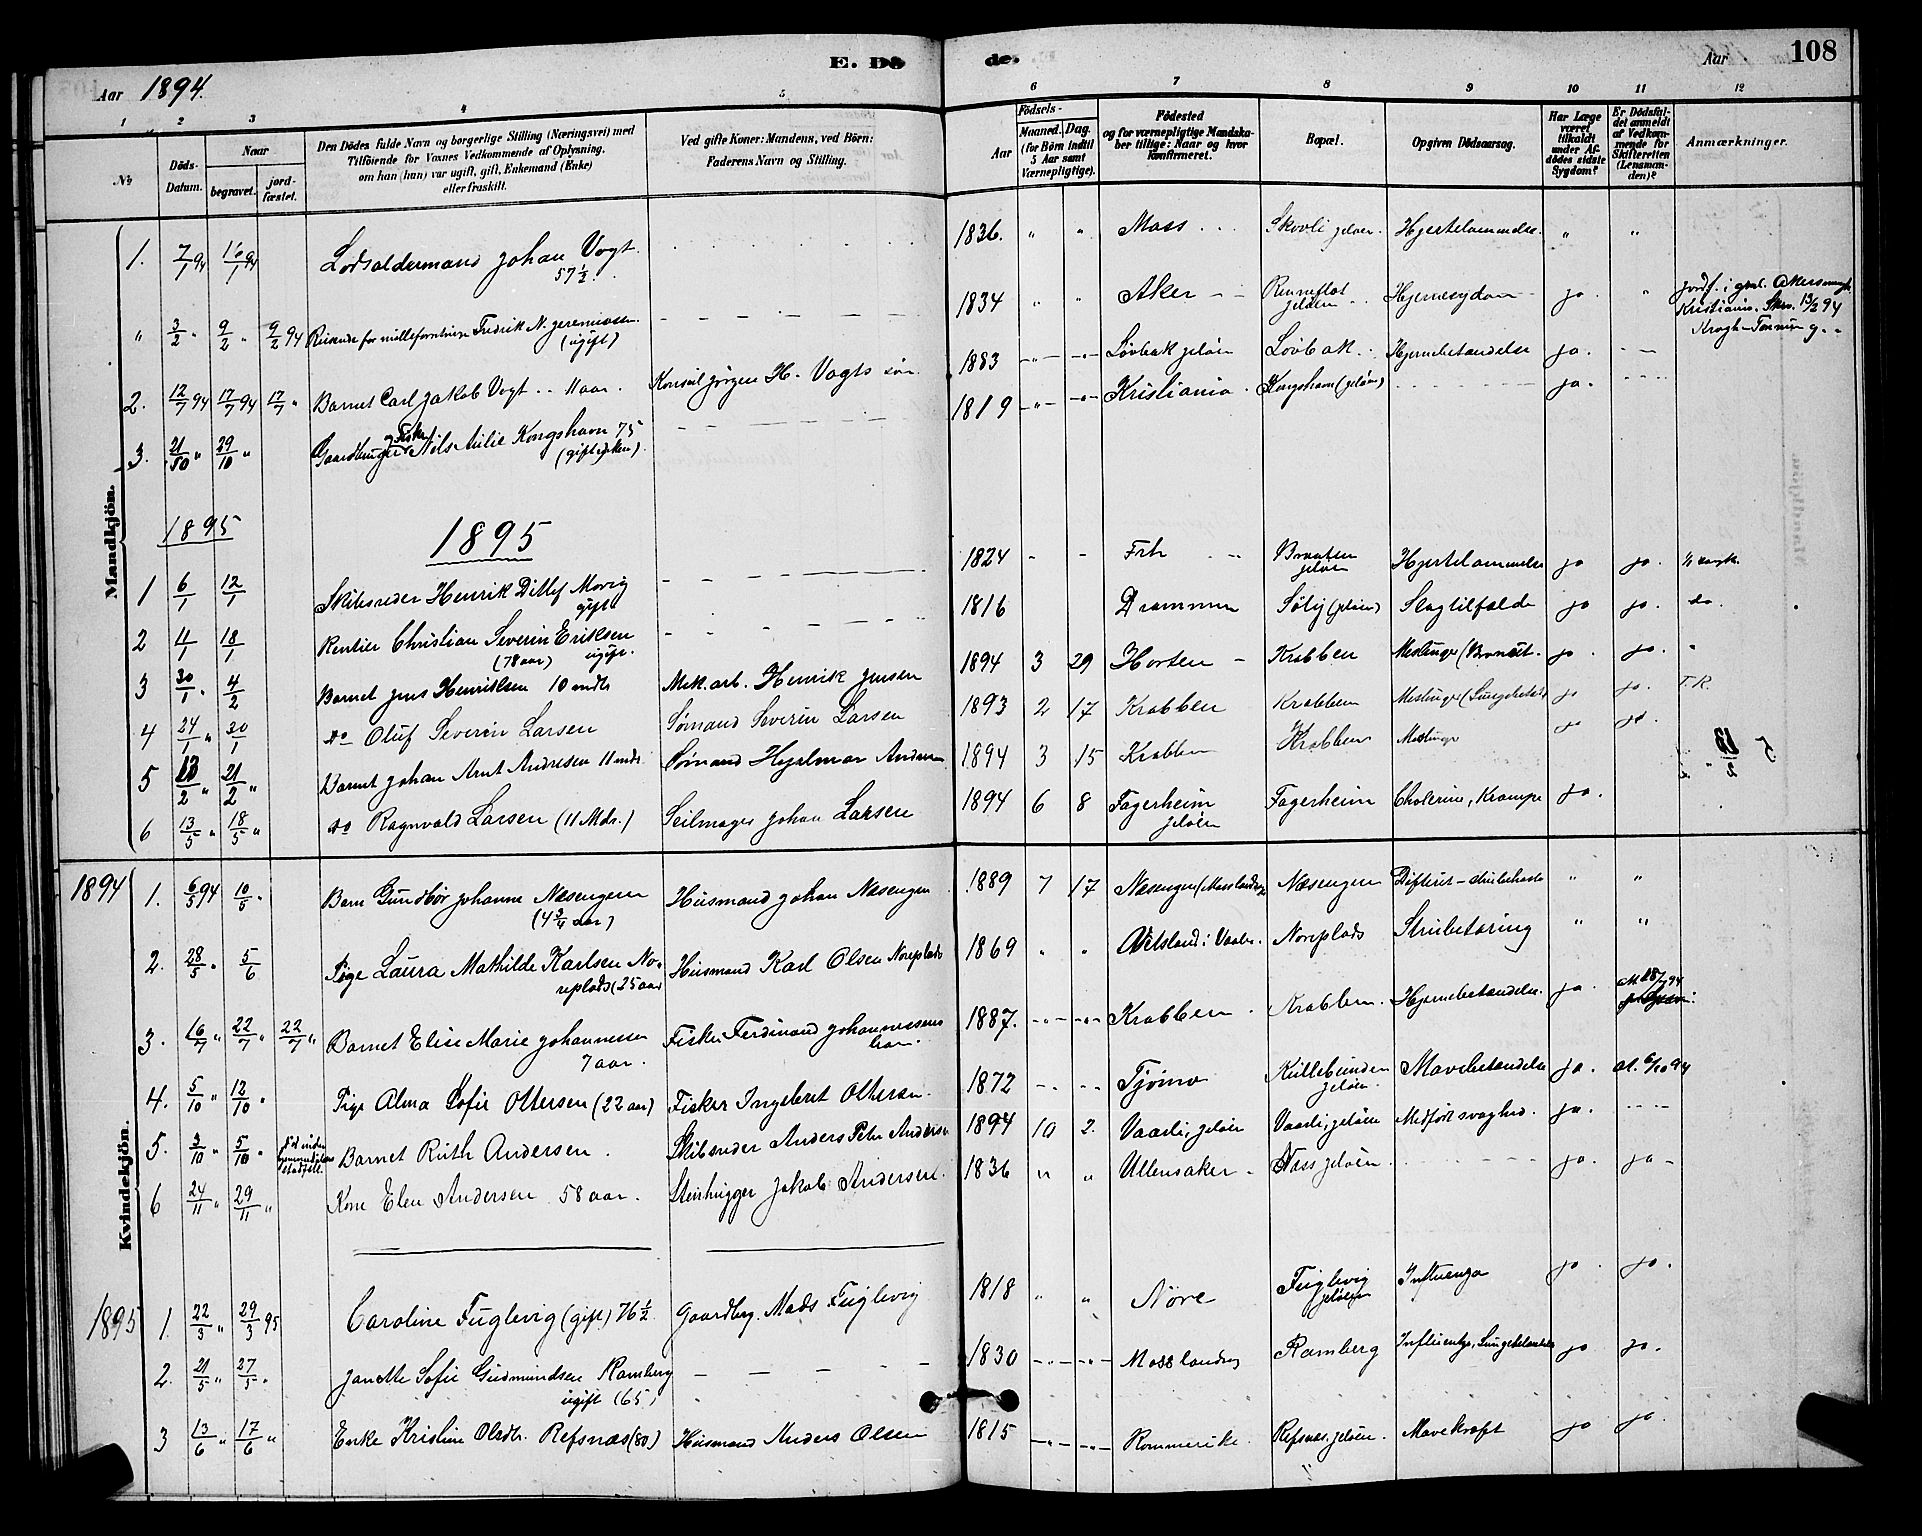 E. Dö de.
108
Aar 1894. Aar
1 2 3 4 5 6 7 8 9 10 11 12
№ Döds-Datum. Naar begravet. jordfæstet. Den Dödes fulde Navn og borgerlige Stilling (Næringsvei) med Tilföiende for Voxnes Vedkommende af Oplysning, om han (hun) var ugift, gift, Enkemand (Enke) eller fraskilt. Ved gifte Koner: Mandens, ved Börn: Faderens Navn og Stilling. Aar Födsels- Maaned. Dag. (for Börn indtil 5 Aar samt Værnepligtige). Födested og for værnepligtige Mandskaber tillige: Naar og hvor konfirmeret. Bopæl. Opgiven Dödsaarsag. Har Læge været tilkaldt under Afdödes sidste Sygdom? Er Dödsfaldet anmeldt af Vedkommende for Skifteretten (Lensmanden)? Anmærkninger.
Mandkjön.
1. 7/1 94 16/1 94 Lodsoldermand Johan Vogt. 57 1/2 1836. " " Moss Skovli Jeløen. Hjertelammelse. " "
" 3/2 " 9/2 " 9/2 94 Reisende for mølleforretninge Fredrik N. Jeremiassen (ugift) 1834 " " Aker Renneflot Jeløen Hjernesygdom ja. " Jordf. i gml. Akers Kristiania. Skr. 13/2 94
2. 12/7 94 17/7 94 17/7 " Barnet Carl Jakob Vogt 11 aar. Konsul Jørgen H. Vogts søn 1883 Løvbak Jeløen Løvbak Hjernebetændelse ja.
3. 21/10 " 29/10 " Gaardbruger og Fisker Nils Kongshavn 75 (gift) 1819 Kristiania Kongshavn (Jeløen) ja.
1895 1895
1 6/1 12/1 Skibsreder Henrik Ditlef Movig gift 1824 Braaten Jeløen Hjertelammelse ja ja.
2 4/1 18/1 Rentier Christian Severin Eriksen (78 aar) ugift. 1816 Drammen Søly (Jeløen) Slagtilfælde ja ja. do.
3 30/1 " 4/2 Barnet Jens Henriksen 10 mdr Mek. arb. Henrik Jensen 1894 3 29 Horten Krabben Meslinger ja ja. "
4 24/1 " 30/1 do Oluf Severin Larsen Sømand Severin Larsen 1893 2 17 Krabben Krabben Meslinger ja ja. T.R.
5 13/2 " 21/2 " Barnet Johan Arnt Andresen 11 mdr Sømand Hjalmar Andresen 1894 3 15 Krabben Krabben Meslinger ja ja.
6 13/5 " 18/5 " do Ragnvald Larsen (11 Mdr.) Seilmager Johan Larsen 1894 6 8 Fagerheim Jeløen Fagerheim Cholerine, Krampe ja.
Kvindekjön.
1894 1. 6/5 94 10/5 " Barn Gundbør Johanne Næsengen (4 3/4 aar) Husmand Johan Næsengen 1889 7 17 Næsengen (Moss landsogn Næsengen Difterit – strubehoste " "
2. 28/5 " 5/6 Pige Laura Mathilde Karlsen Noreplads (25 aar) Husmand Karl Olsen Noreplads 1869 " " i Vaaler. Noreplads Strubetæring " "
3. 16/7 " 22/7 " 22/7 " Barnet Elise Marie Johannessen 7 aar. Fisker Ferdinand Johannessens barn. 1887. Krabben Krabben. Hjernebetændelse. ja. 28/7 94
4. 5/10 " 12/10 " Pige Alma Sofie Ottersen (22 aar) Fisker Ingebret Ottersen 1872 Tjømø Kullebunden Jeløen. Mavebetændelse ja. 6/10 94
5. 3/10 " 5/10 " Barnet Ruth Andersen. Skibsreder Anders Peter Andersen 1894 10 2. Vaarli, Jeløen Vaarli, Jeløen Medfødt svaghed. ja.
6 24/11 " 29/11 " Kone Elen Andersen 58 aar. Stenhugger Jakob Andersen. 1836 " " Ullensaker Næss Jeløen. ja. ja
1895 1. 22/3 " 29/3 95 Caroline Fuglevig (gift) 76 1/2 Gaardbrg. Mads Fuglevig 1818 " " Nore Fuglevig Jeløen Influenza ja. ja.
2. 21/5 " 27/5 " Janette Sofie Gudmundsen Ramberg ugift (65) 1830 Moss landsog Ramberg Influenza, Lungebetændelse ja ja.
3 13/6 " 17/6 " Enke Kristine Olsdtr. Refsnæs (80) Husmand Anders Olsen 1815 Rommerike Refsnes, Jeløen. Mavekræft ja ja.